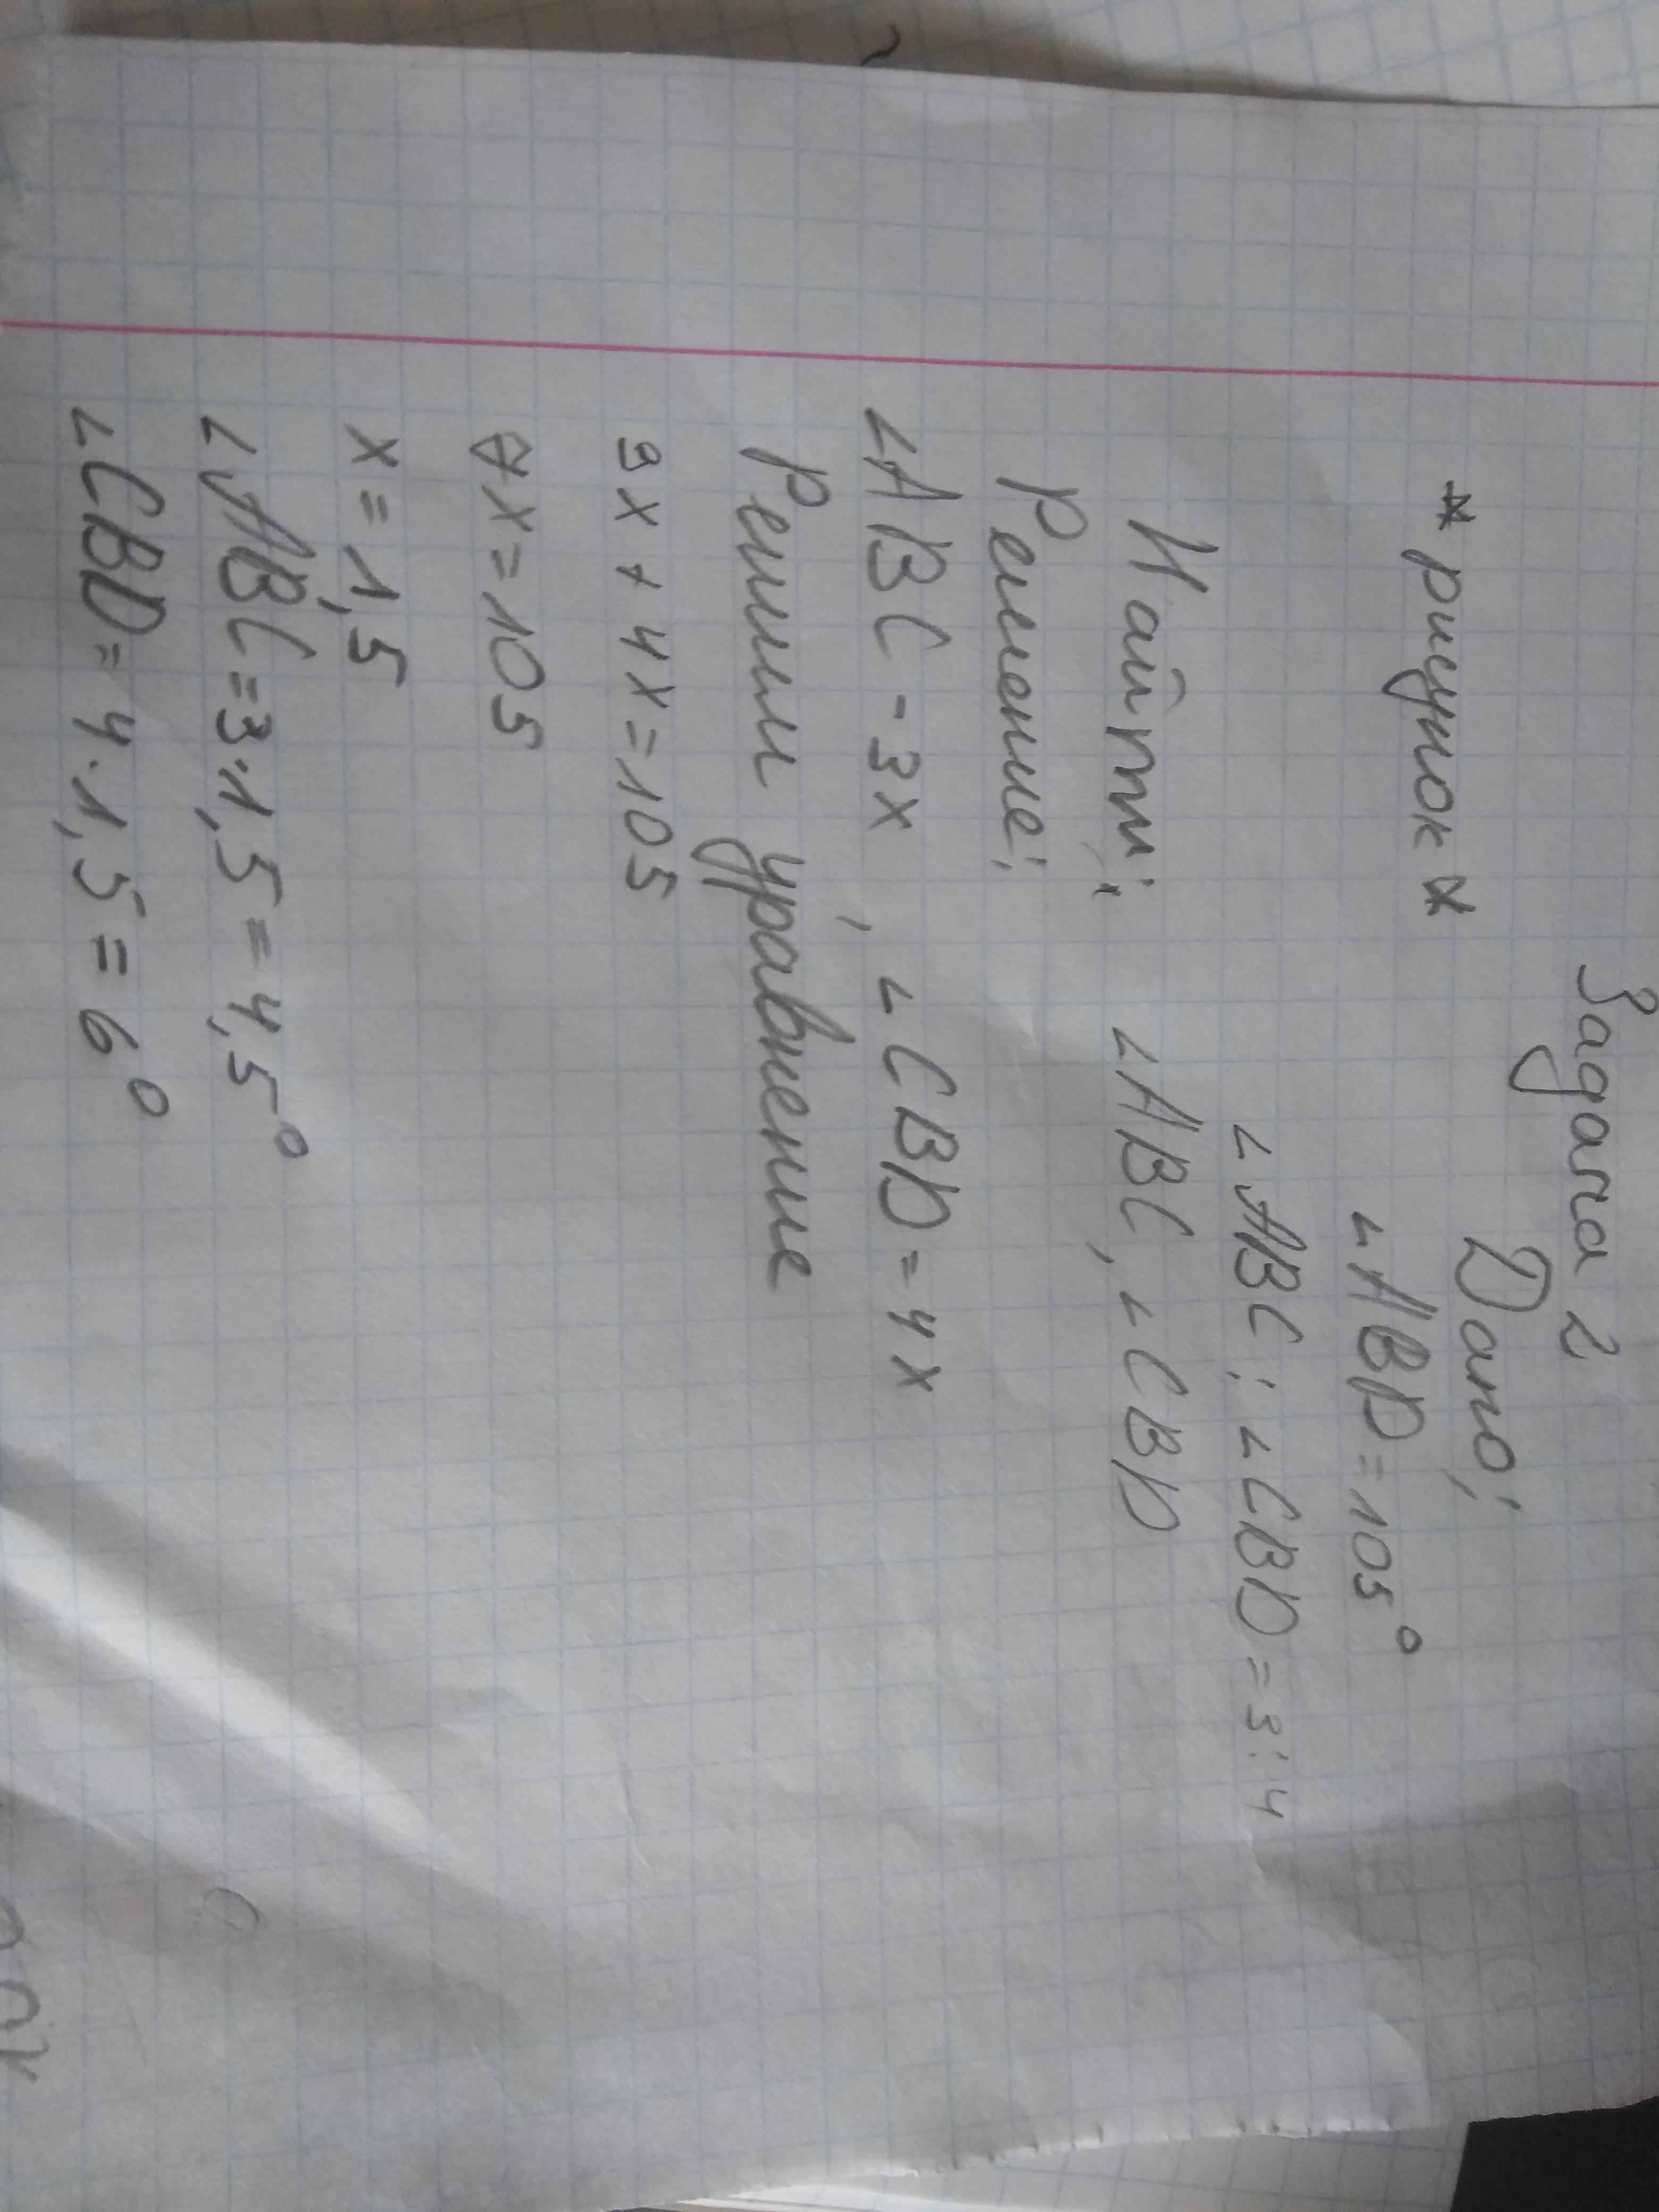 Задача 2
* рисунок *
Дано:
∠ABD = 105°
∠ABC : ∠CBD = 3:4
Найти: ∠ABC, ∠CBD
Решение:
∠ABC - 3x, ∠CBD = 4x
Решим уравнение
3x + 4x = 105
7x = 105
x = 1,5
∠ABC = 3·1,5 = 4,5°
∠CBD = 4·1,5 = 6°